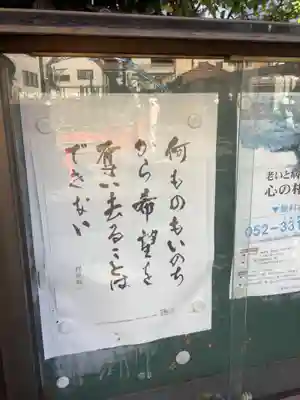 何ものもいのち
から希望を
奪い去ることは
できない
老いと病
心の相
▼無料
052-331